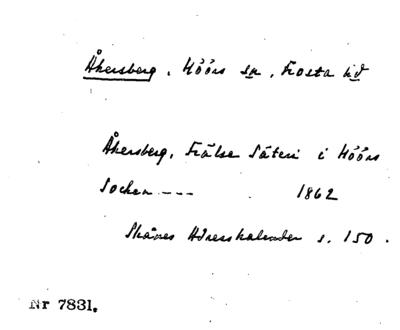 Åkersberg, Höörs sn, Frosta hd
Åkersberg, Frälse Säteri i Höörs
Socken --- 1862
Skånes Adresskalender s. 150.
Nr 7831.